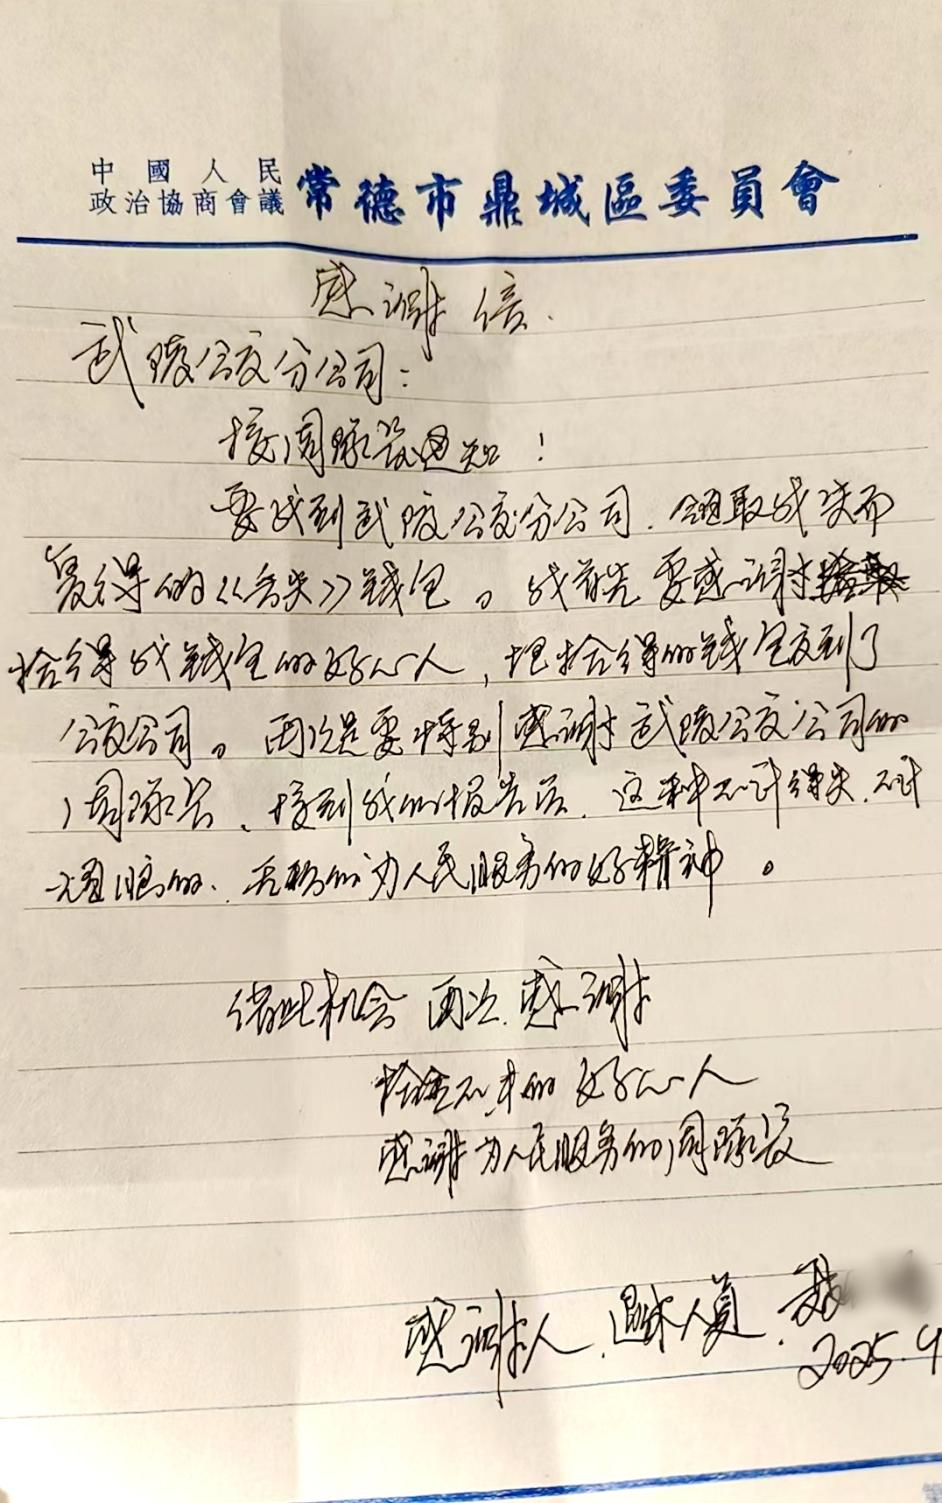 中國人民
政治協商會議
常德市鼎城區委員會
感谢信.
武陵公交分公司:
接周队长通知!
要我到武陵公交分公司.领取我失而
复得的《丢失》钱包。我首先要感谢
拾得我钱包的好心人,把拾得的钱包交到了
公交公司。再次是要特别感谢武陵公交公司的
周队长、接到我的报告后、这种不计得失.不计
的、无私的为人民服务的好精神。
借此机会再次感谢
拾金不才的好心人
感谢为人民服务的周队长
感谢人.退休人员.
2025.9